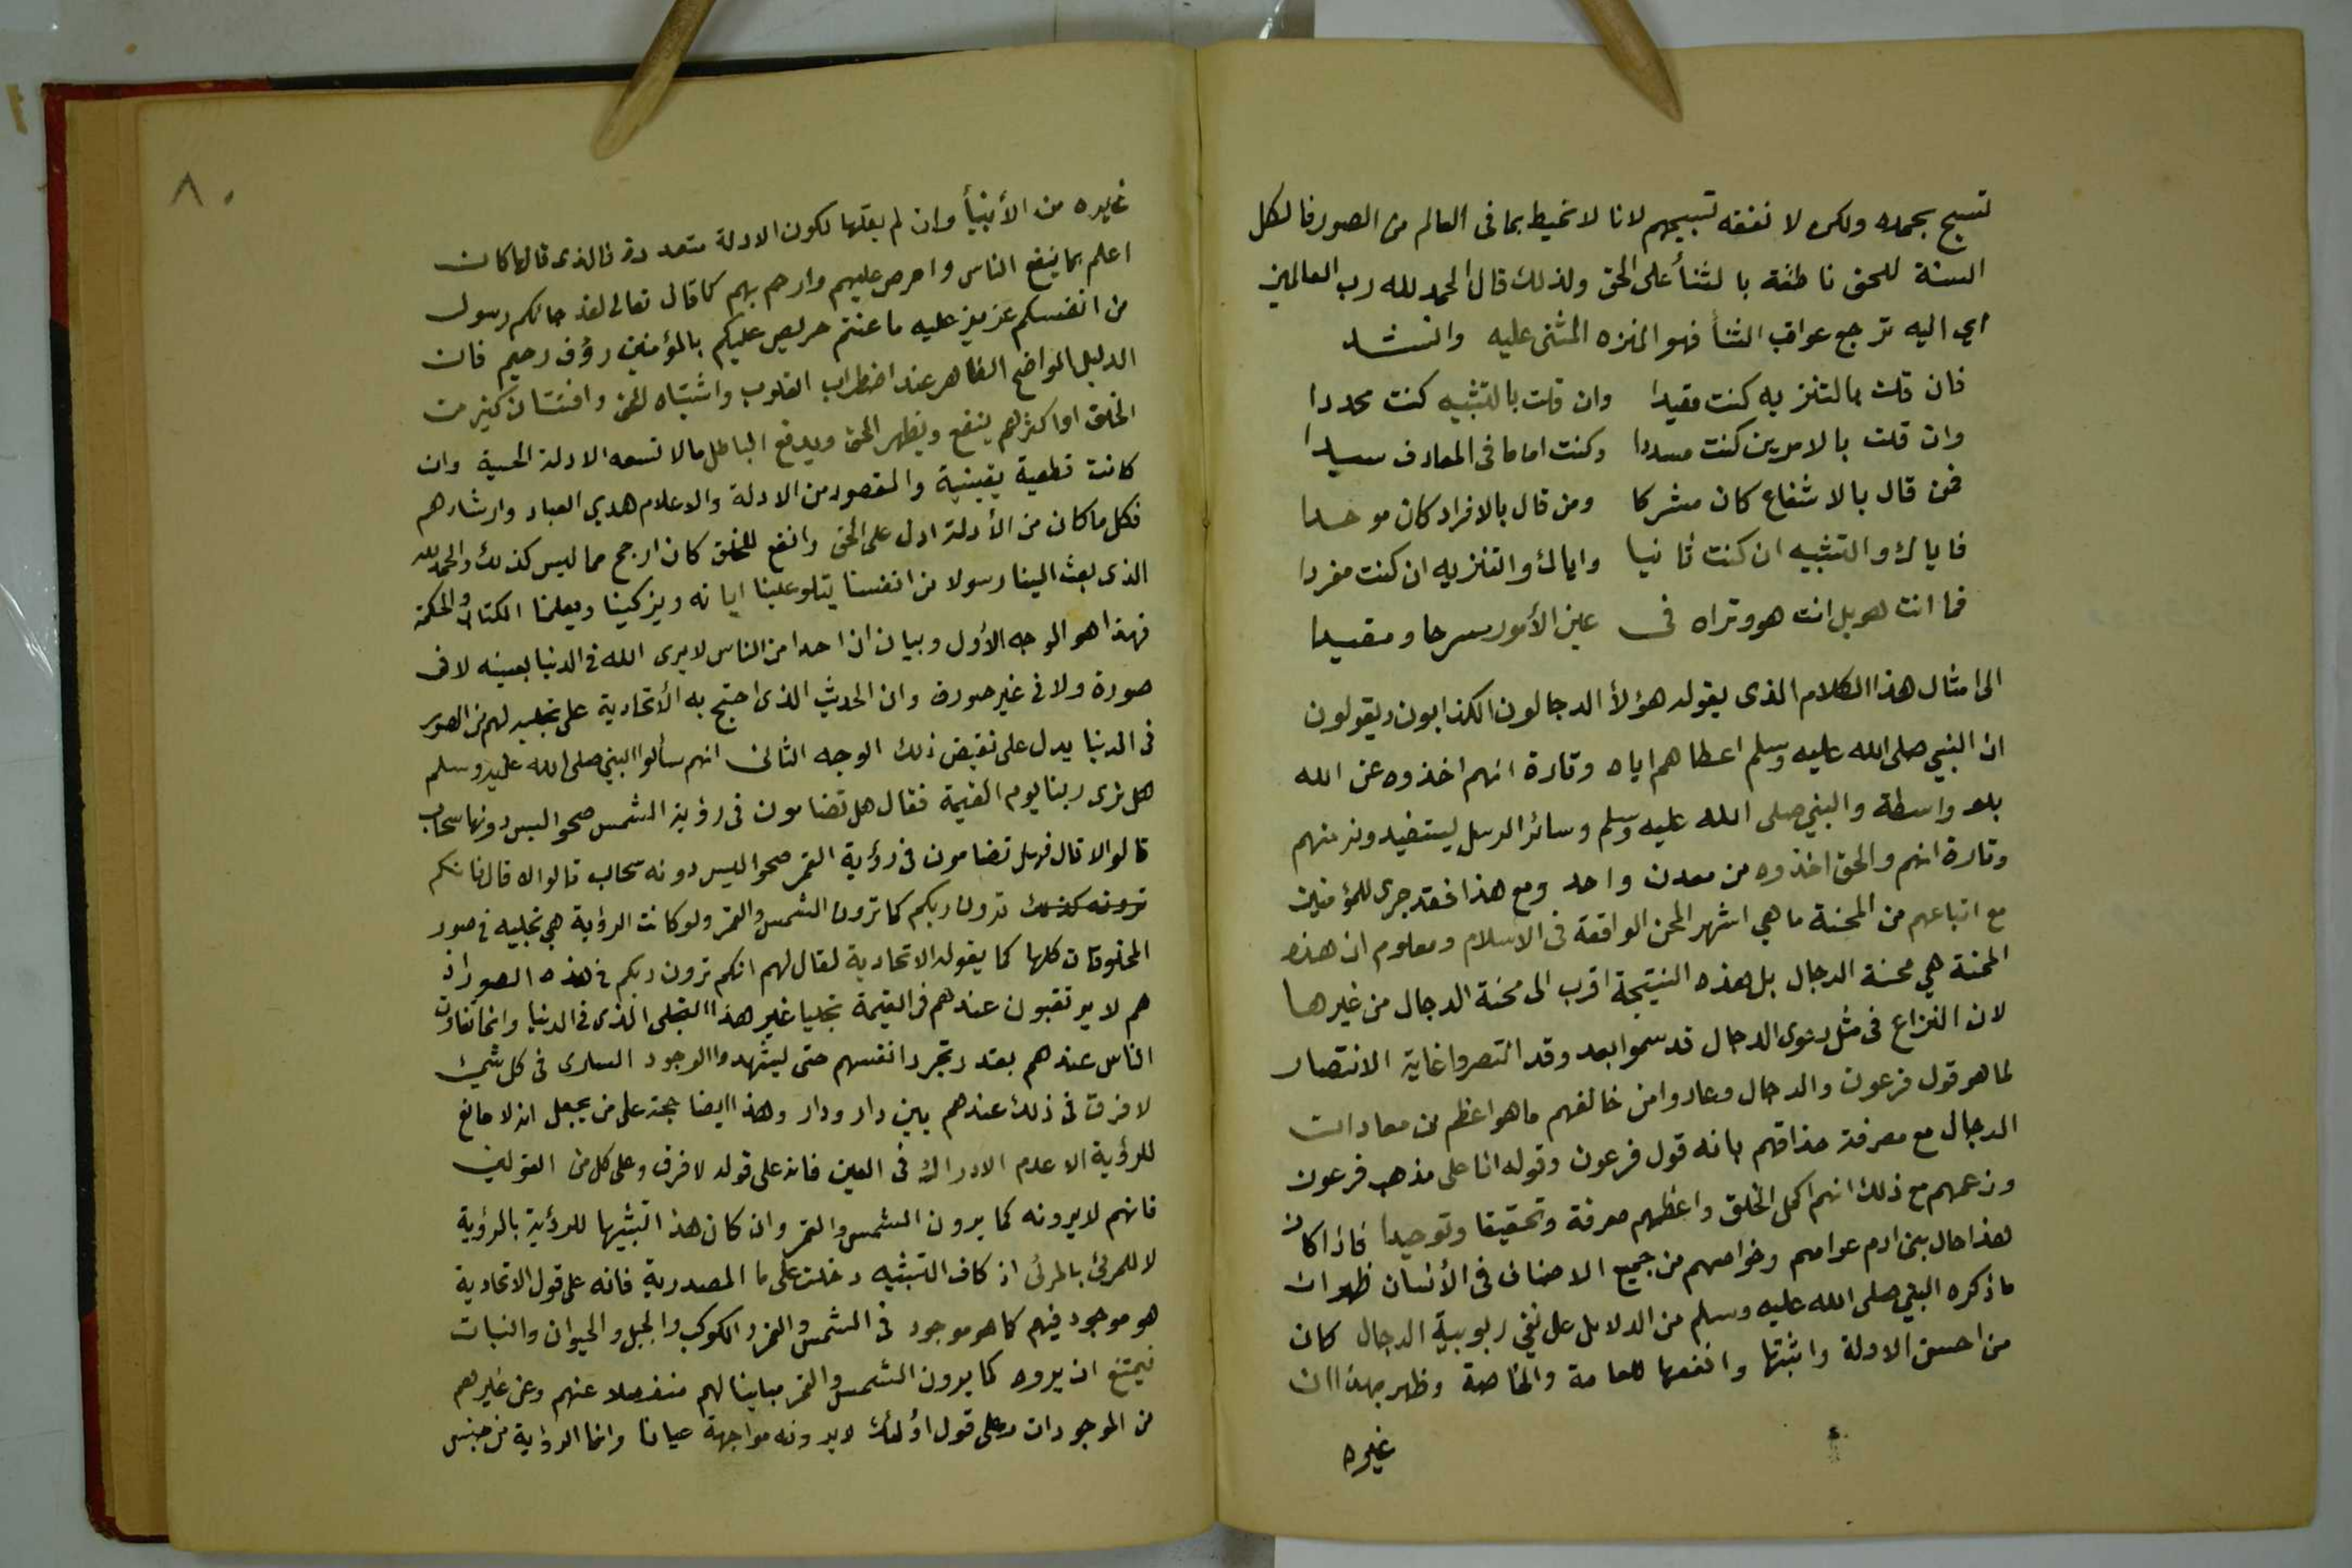 تسبح بحمده ولكن لا نفقه تسبيحهم لانا لا نحيط بما فى العالم من الصور فالكل
السنة للحق ناطقة بالثنأ على الحق ولذلك قال الحمد لله رب العالمين
اي اليه ترجع عواقب الثنأ فهو المنزه المثنى عليه وانشد
فان قلت بالتنزيه كنت مقيدا وان قلت بالتشبيه كنت محددا
وان قلت بالامرين كنت مسددا وكنت اماما فى المعارف سيدا
فمن قال بالاشفاع كان مشركا ومن قال بالافراد كان موحدا
فاياك والتشبيه ان كنت ثانيا واياك والتنزيه ان كنت مفردا
فما انت هو بل انت هو وتراه فى عين الأمور مسرحا ومقيدا
الى امثال هذا الكلام الذى يقوله هؤلأ الدجالون الكذابون ويقولون
ان النبي صلى الله عليه وسلم اعطاهم اياه وتارة انهم اخذوه عن الله
بلا واسطة والنبي صلى الله عليه وسلم وسائر الرسل يستفيدون منهم
وتارة انهم والحق اخذوه من معدن واحد ومع هذا فقد جرى للمؤمنين
مع اتباعهم من المحنة ما هي اشهر المحن الواقعة فى الاسلام ومعلوم ان هذه
المحنة هي محنة الدجال بل هذه النتيجة اقرب الى محنة الدجال من غيرها
لان النزاع فى مثل دعوى الدجال قد سموا بعد وقد انتصروا غاية الانتصار
لما هو قول فرعون والدجال وعادوا من خالفهم ما هو اعظم من معادات
الدجال مع معرفة حذاقهم بانه قول فرعون وقوله انا على مذهب فرعون
وزعمهم مع ذلك انهم اكمل الخلق واعظمهم معرفة وتحقيقا وتوحيدا فاذا كان
هذا حال بنى ادم عوامهم وخواصهم من جميع الاصناف فى الأنسان ظهر ان
ما ذكره النبي صلى الله عليه وسلم من الدلايل على نفي ربوبية الدجال كان
من احسن الادلة واثبتها وانفعها للعامة والخاصة وظهر بهذا ان
غيره
٨٠
غايره من الأنبيأ وان لم يقلها لكون الادلة متعددة فالذى قالها كان
اعلم بما ينفع الناس واحرص عليهم وارحم بهم كما قال تعالى لقد جائكم رسول
من انفسكم عزيز عليه ما عنتم حريص عليكم بالمؤمنين رؤف رحيم فان
الدليل الواضح الظاهر عند اضطراب القلوب واشتباه الحق وافتتان كثير من
الخلق او اكثرهم ينفع ويظهر الحق ويدفع الباطل مالا تسعه الادلة الحسية وان
كانت قطعية يقينية والمقصود من الادلة والاعلام هدي العباد وارشادهم
فكل ما كان من الأدلة ادل على الحق وانفع للخلق كان ارجح مما ليس كذلك والحمد لله
الذى بعث الينا رسولا من انفسنا يتلو علينا اياته ويزكينا ويعلمنا الكتاب والحكمة
فهذا هو الوجه الأول وبيان ان احدا من الناس لا يرى الله فى الدنيا بعينه لا فى
صورة ولا فى غير صورة وان الحديث الذى احتج به الأتحادية على تجليه لهم فى الصور
فى الدنيا يدل على نقيض ذلك الوجه الثانى انهم سألوا النبي صلى الله عليه وسلم
هل نرى ربنا يوم القيمة فقال هل تضامون فى رؤية الشمس صحوا ليس دونها سحاب
قالوا لا قال فهل تضامون فى رؤية القمر صحوا ليس دونه سحاب قالوا لا قال فانكم
ترونه كذلك ترون ربكم كما ترون الشمس والقمر ولو كانت الرؤية هي تجليه فى صور
المخلوقات كلها كما يقوله الاتحادية لقال لهم انكم ترون ربكم فى هذه الصور اذ
هم لا يرتقبون عندهم فى القيمة تجليا غير هذا التجلى الذى فى الدنيا وانما تفاوت
الناس عندهم بقدر تجرد انفسهم حتى ليشهدوا الوجود السارى فى كل شئ
لا فرق فى ذلك عندهم بين دار ودار وهذا ايضا حجة على من يجعل انه لا مانع
للرؤية الا عدم الادراك فى العين فانه على قوله لا فرق وعلى كل من القولين
فانهم لا يرونه كما يرون الشمس والقمر وان كان هذا تشبيها للرؤية بالرؤية
لا للمرئى بالمرئى اذ كاف التشبيه دخلت على ما المصدرية فانه على قول الاتحادية
هو موجود فيهم كما هو موجود فى الشمس والقمر والكوكب والجبل والحيوان والنبات
فيمتنع ان يروه كما يرون الشمس والقمر مباينا لهم منفصلا عنهم وعن غيرهم
من الموجودات وعلى قول اؤلئك لا يرونه مواجهة عيانا وانما الرؤية من جنس